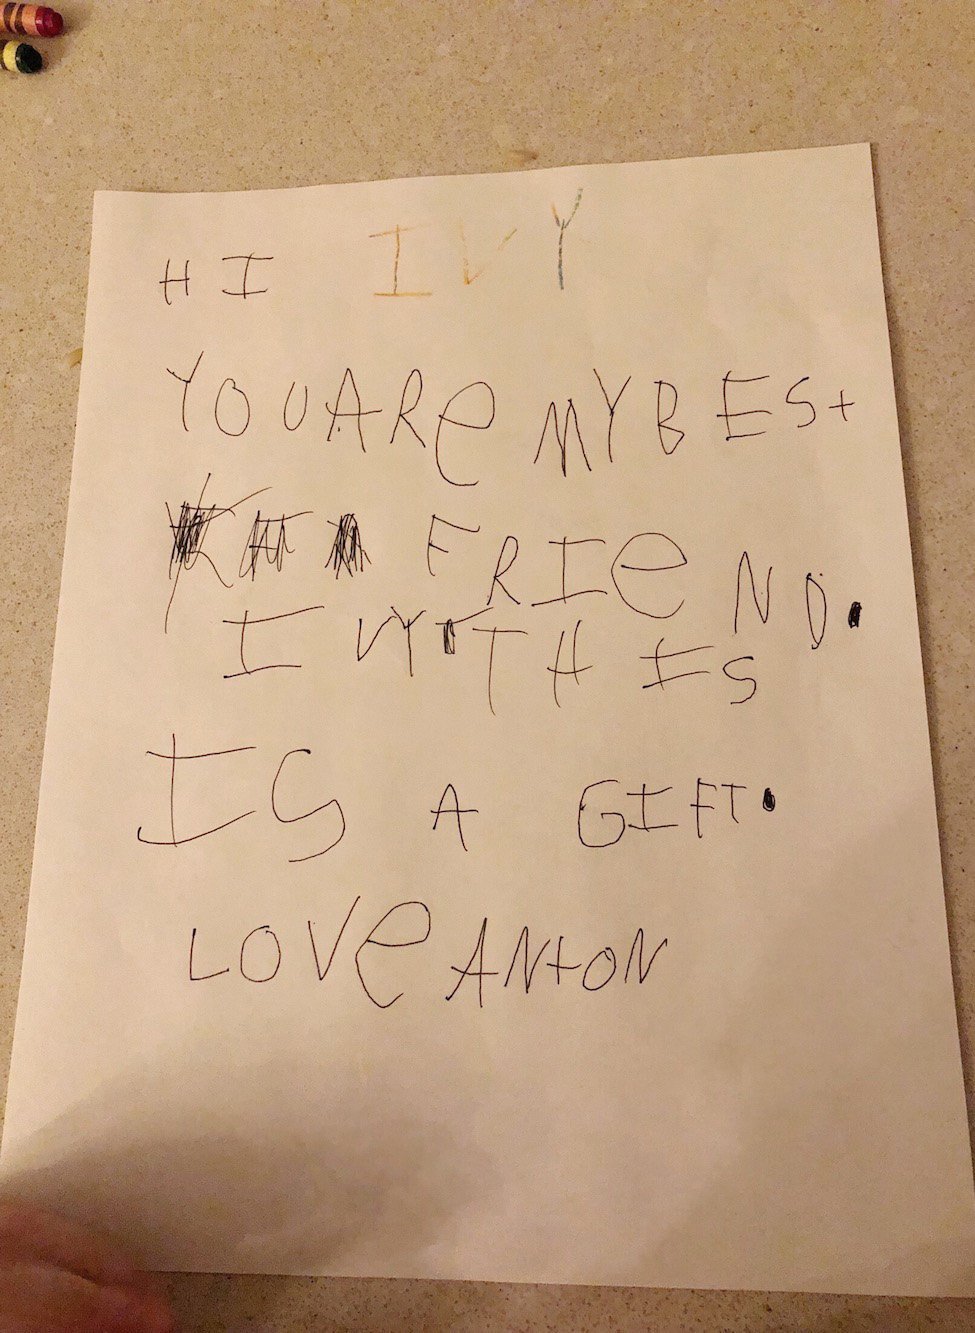 HI IVY
YOU ARe MY BESt
FRIeND.
IVY THIS
IS A GIFT.
LOVe ANtON